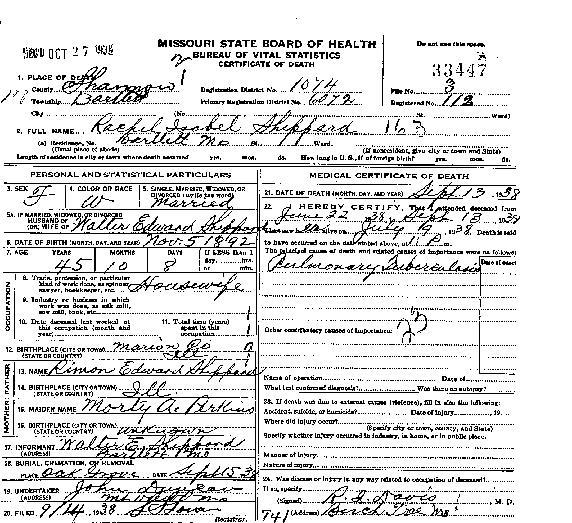 MISSOURI STATE BOARD OF HEALTH
BUREAU OF VITAL STATISTICS
CERTIFICATE OF DEATH
Do not use this space.
OCT 27 1938
33447
1. PLACE OF DEATH
County Shannon
Registration District No. 1074
File No. 3
Township Bartlett
Primary Registration District No. 6072
Registered No. 112
City No. St. Ward)
2. FULL NAME Rachel Isabel Shippard 163
(a) Residence, No. Bartlett Mo St. Ward.
(Usual place of abode) (If nonresident, give city or town and State)
Length of residence in city or town where death occurred yrs. mos. ds. How long in U. S., if of foreign birth? yrs. mos. ds.
PERSONAL AND STATISTICAL PARTICULARS
3. SEX F
4. COLOR OR RACE W
5. SINGLE, MARRIED, WIDOWED, OR DIVORCED (write the word) Married
5A. IF MARRIED, WIDOWED, OR DIVORCED
HUSBAND OF
(OR) WIFE OF Walter Edward Shippard
6. DATE OF BIRTH (MONTH, DAY, AND YEAR) Nov. 5 1892
7. AGE YEARS MONTHS DAYS If LESS than 1
45 10 8
OCCUPATION
8. Trade, profession, or particular kind of work done, as spinner, sawyer, bookkeeper, etc. Housewife
9. Industry or business in which work was done, as silk mill, saw mill, bank, etc.
10. Date deceased last worked at this occupation (month and year)
11. Total time (years) spent in this occupation
12. BIRTHPLACE (CITY OR TOWN) Marion Co
(STATE OR COUNTRY) Ill
FATHER
13. NAME Rimon Edward Shippard
14. BIRTHPLACE (CITY OR TOWN)
(STATE OR COUNTRY) Ill
MOTHER
15. MAIDEN NAME Morty A. Perkins
16. BIRTHPLACE (CITY OR TOWN)
(STATE OR COUNTRY) unknown
17. INFORMANT Walter E. Shippard
Bartlett Mo
18. BURIAL, CREMATION, OR REMOVAL
Oak Grove DATE Sept 15 38
19. UNDERTAKER John
20. FILED 9/14 1938
Registrar.
MEDICAL CERTIFICATE OF DEATH
21. DATE OF DEATH (MONTH, DAY, AND YEAR) Sept 13 1938
22. I HEREBY CERTIFY, That I attended deceased from
June 22 1938, to Sept 13 1938
I last saw her alive on July 19 1938. Death is said
to have occurred on the date stated above, at
The principal cause of death and related causes of importance were as follows:
Date of onset
Pulmonary Tuberculosis
Other contributory causes of importance:
23
Name of operation Date of
What test confirmed diagnosis? Was there an autopsy?
23. If death was due to external causes (violence), fill in also the following:
Accident, suicide, or homicide? Date of injury 19
Where did injury occur?
(Specify city or town, county, and State)
Specify whether injury occurred in industry, in home, or in public place.
Manner of injury
Nature of injury
24. Was disease or injury in any way related to occupation of deceased?
If so, specify
(Signed) R. D. Davis M. D.
741 (Address) Birch Tree Mo